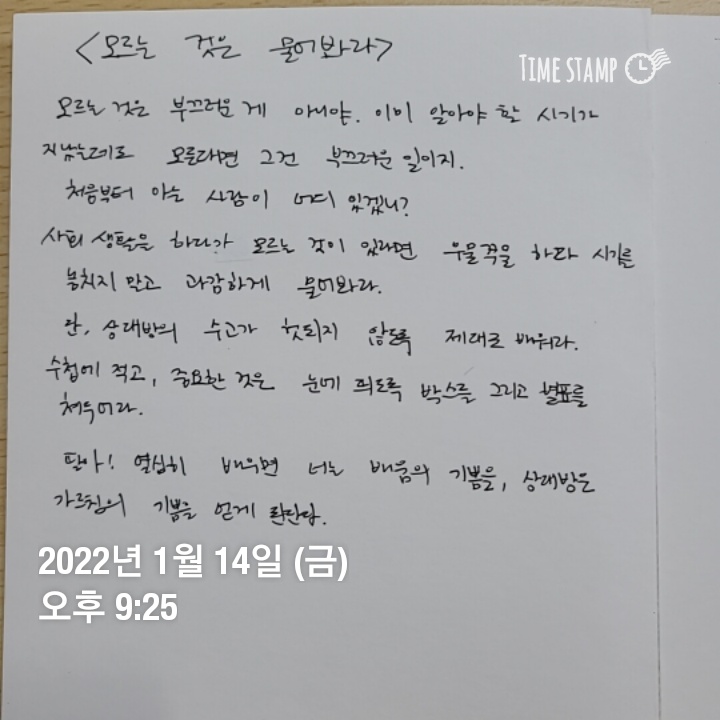 <모르는 것은 물어봐라>
TIME STAMP
모르는 것은 부끄러운 게 아니야. 이미 알아야 할 시기가
지났는데도 모른다면 그건 부끄러운 일이지.
처음부터 아는 사람이 어디 있겠니?
사회 생활을 하다가 모르는 것이 있다면 우물쭈물 하다 시기를
놓치지 말고 과감하게 물어봐라.
단, 상대방의 수고가 헛되지 않도록 제대로 배워라.
수첩에 적고, 중요한 것은 눈에 띄도록 박스를 그리고 별표를
쳐두어라.
딸아! 열심히 배우면 너는 배움의 기쁨을, 상대방은
가르침의 기쁨을 얻게 된단다.
2022년 1월 14일 (금)
오후 9:25